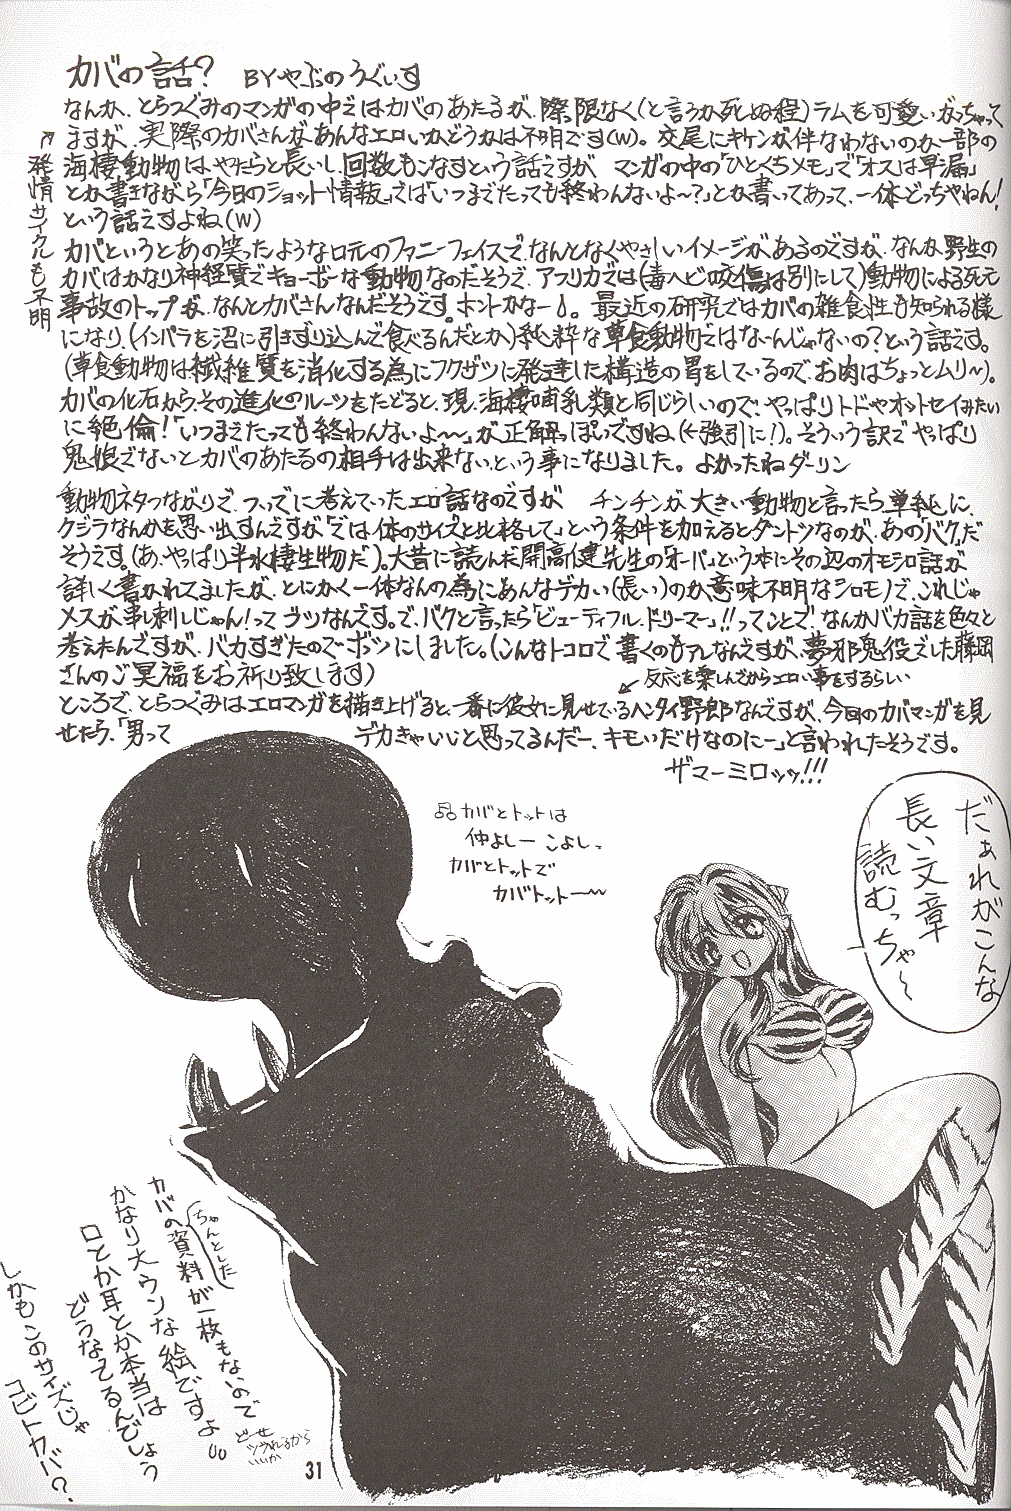 カバの話? BYやぶのうぐいす
なんか、とらつぐみのマンガの中ではカバのあたるが、際限なく(と言うか死ぬ程)ラムを可愛いがっちゃって
ますが、実際のカバさんが、あんなエロいかどうかは不明です(W)。交尾にキケンが伴なわないのか一部の
海棲動物は、やたらと長いし、回数もこなすという話ですが マンガの中の「ひとくちメモ」で「オスは早漏」
とか書きながら「今日のショット情報」では「いつまでたっても終わんないよ〜?」とか書いてあって、一体どっちやねん!
という話ですよね(W)
↖発情サイクルも不明
カバというとあの笑ったような口元のファニーフェイスで、なんとなくやさしいイメージがあるのですが、なんか野生の
カバはかなり神経質でキョーボーな動物なのだそうで、アフリカでは(毒ヘビ咬傷は別にして)動物による死亡
事故のトップが、なんとカバさんなんだそうです。ホントかなー。最近の研究ではカバの雑食性も知られる様
になり、(インパラを沼に引きずり込んで食べるんだとか)純粋な草食動物ではないんじゃないの?という話です。
(草食動物は繊維質を消化する為にフクザツに発達した構造の胃をしているので、お肉はちょっとムリ〜)。
カバの化石から、その進化のルーツをたどると、現・海棲哺乳類と同じらしいので、やっぱりトドやオットセイみたい
に絶倫!「いつまでたっても終わんないよ〜〜」が正解っぽいですね(←強引に!)。そういう訳でやっぱり
鬼娘でないとカバのあたるの相手は出来ない、という事になりました。よかったねダーリン
動物ネタつながりで、ついでに考えてったエロ話なのですが チンチンが大きい動物と言ったら単純に、
クジラなんかを思い出すんですが「では体のサイズと比格して」という条件を加えるとダントツなのが、あの「バク」だ
そうです。(あ、やっぱり半水棲生物だ)。大昔に読んだ開高健先生の「オーパ」という本にその辺のオモシロ話が
詳しく書かれてましたが、とにかく一体なんの為にあんなデカい(長い)のか意味不明なシロモノで、これじゃ
メスが串刺しじゃん!ってブツなんです。で、バクと言ったら「ビューティフル・ドリーマー」!!ってことで、なんかバカ話を色々と
考えたんですが、バカすぎたのでボツにしました。(こんなトコロで書くのもアレなんですが、夢邪鬼役でした藤岡
さんのご冥福をお祈り致します)
↙反応を楽しんでからエロい事をするらしい
ところで、とらつぐみはエロマンガを描き上げると、一番に彼女に見せているヘンタイ野郎なんですが、今回のカバマンガを見
せたら、「男って デカきゃいいと思ってるんだー、キモいだけなのにー」と言われたそうです。
ザマーミロッッ!!!
だぁれがこんな
長い文章
読むっちゃ〜
♫カバとトットは
仲よしー こよしー
カバとトットで
カバトットー〜
カバの(ちゃんとした)資料が一枚もないので
かなり大ウソな絵ですよ
口とか耳とか本当は
どうなってるんでしょう
しかもこのサイズじゃ
コビトカバ?
どーせ
ツブれるから
いいか
31